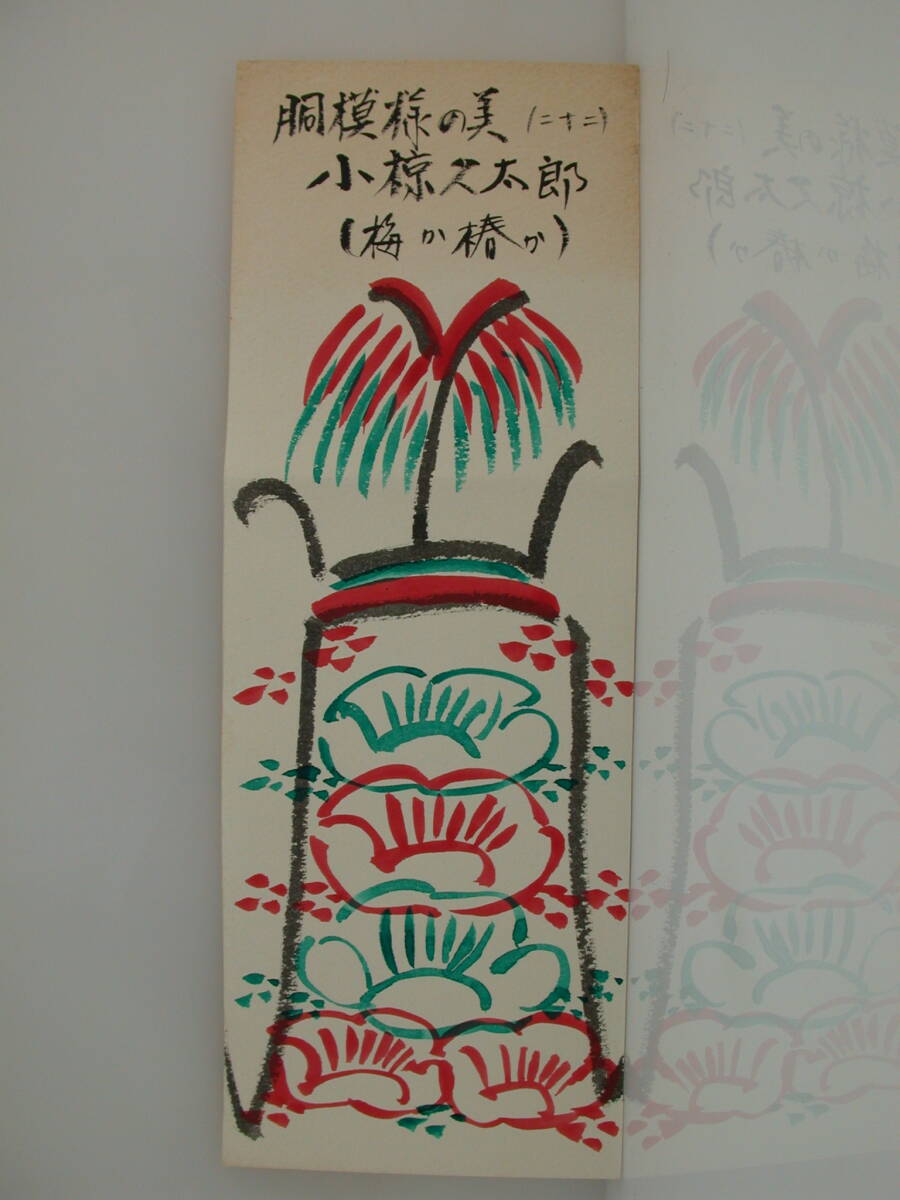 胴模様の美(二十二)
小椋久太郎
(梅か椿か)